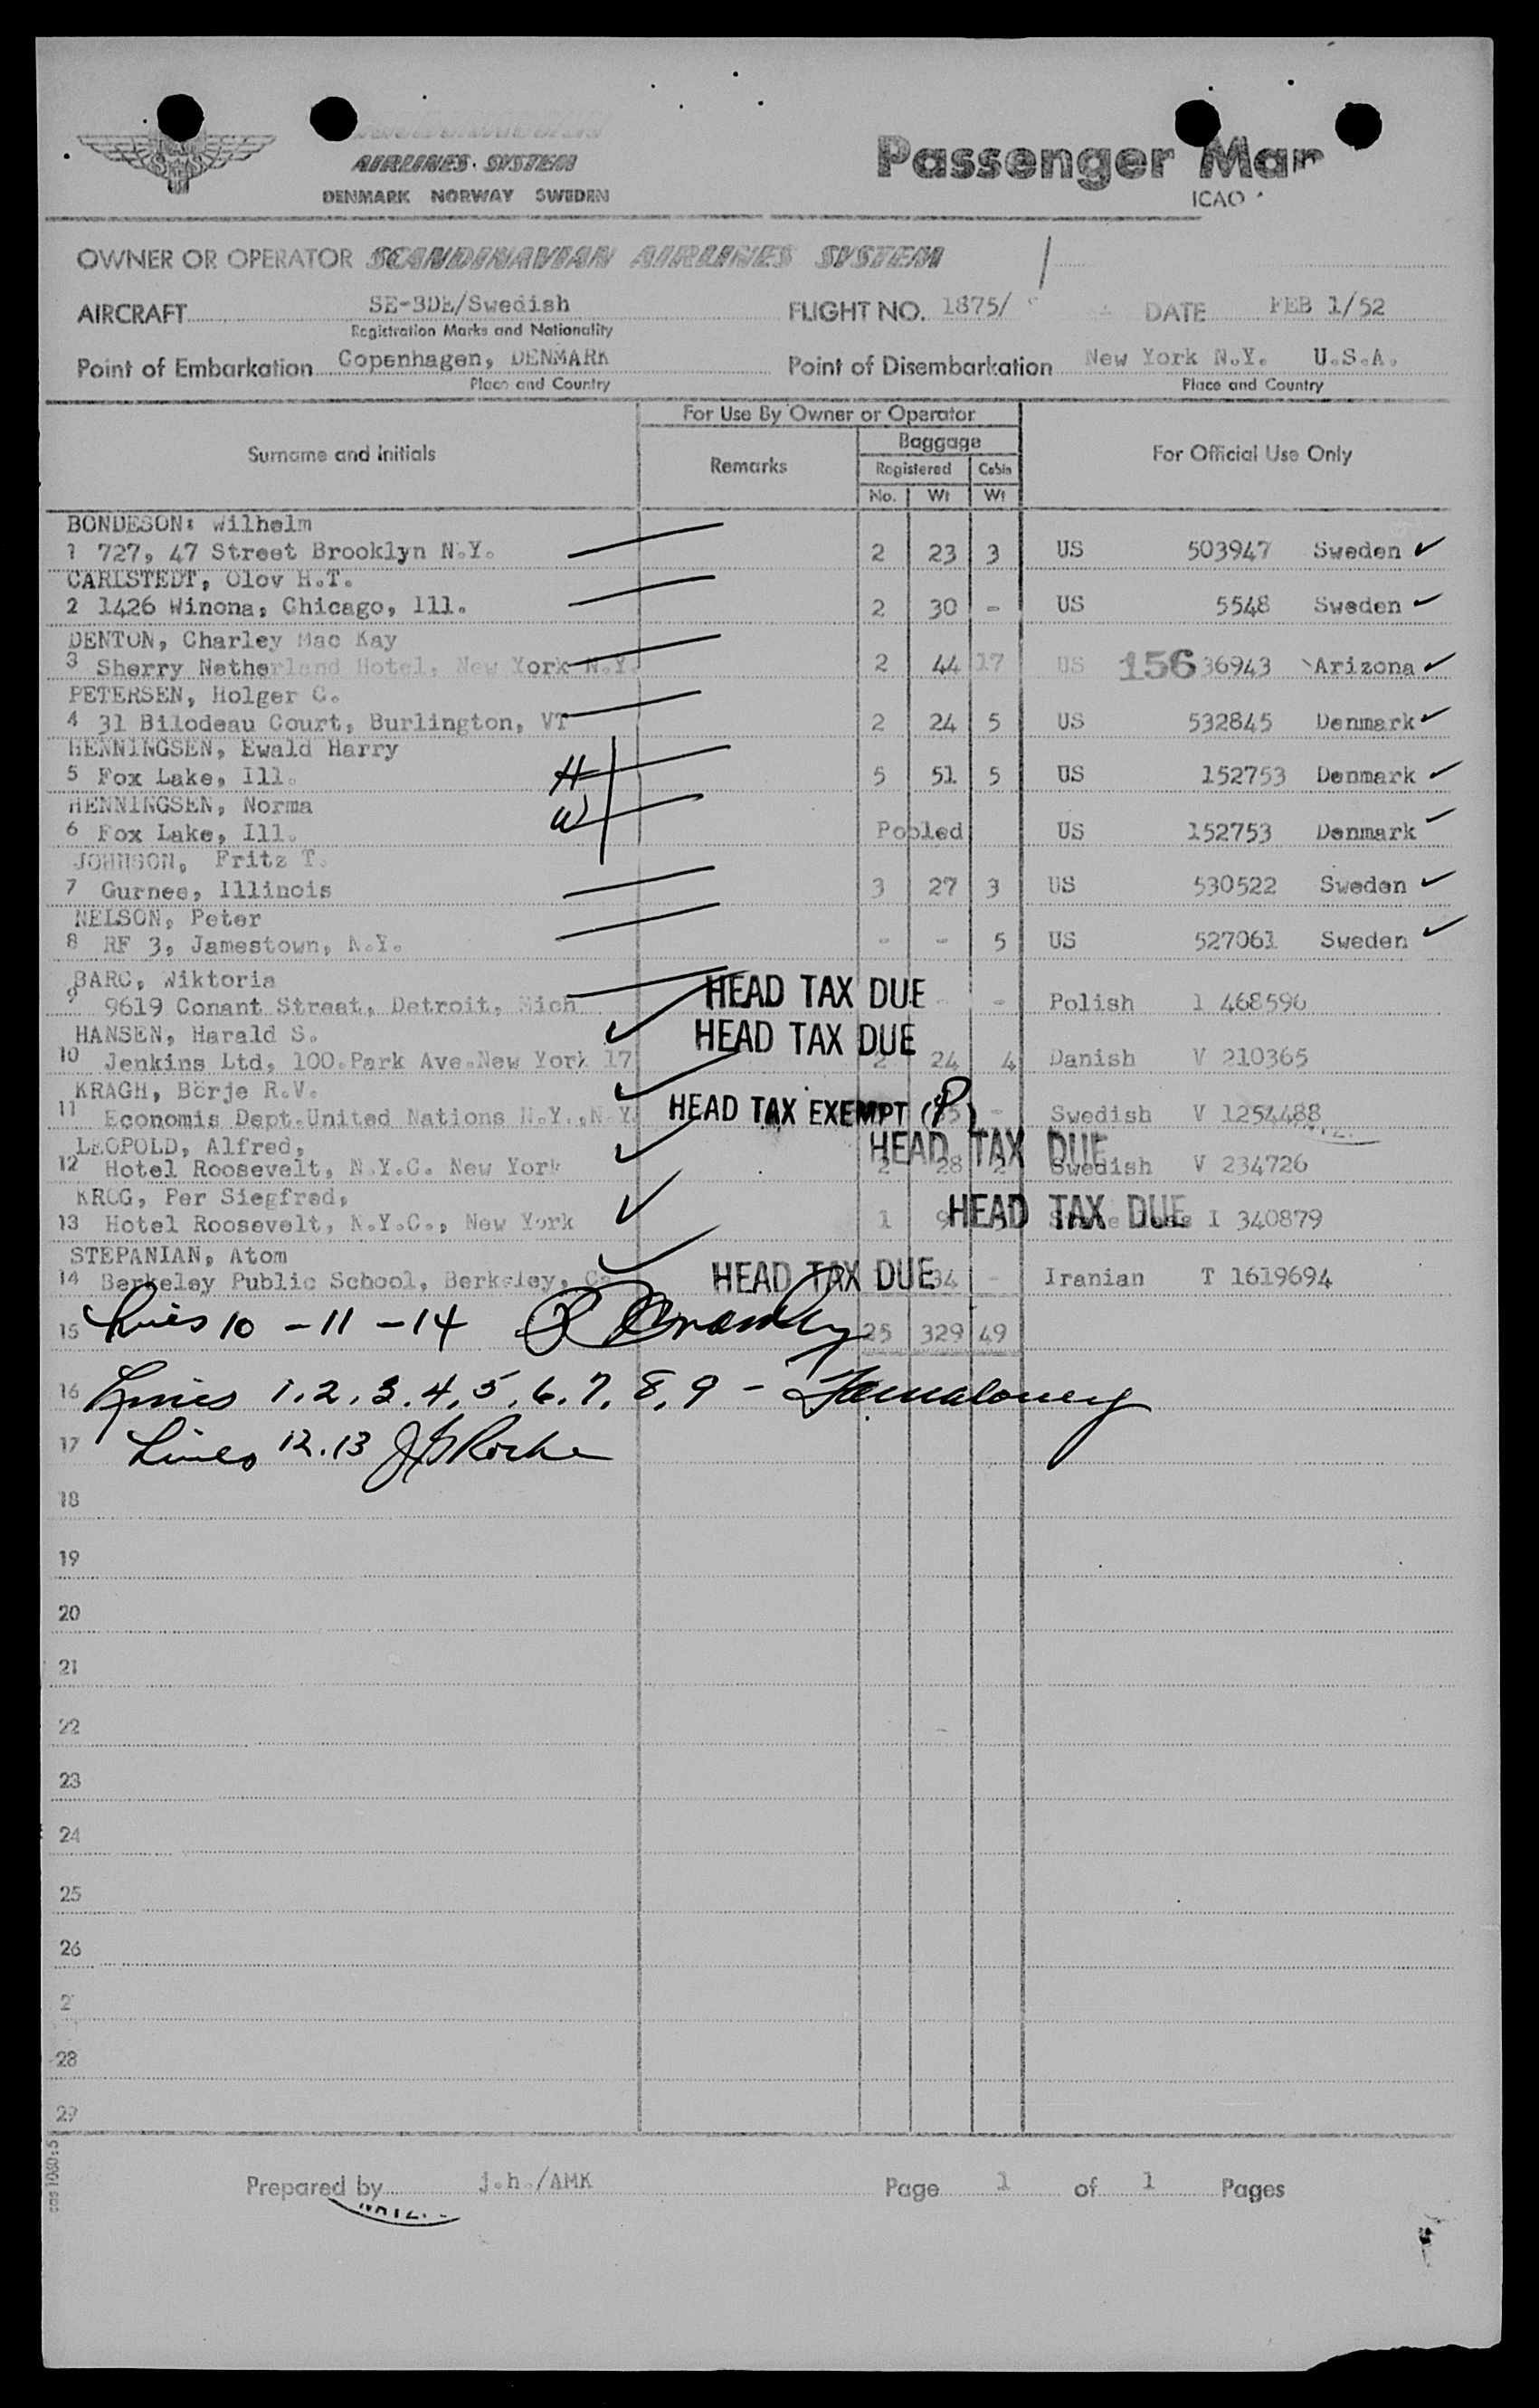 AIRLINES SYSTEM
DENMARK NORWAY SWEDEN
Passenger Man
ICAO
OWNER OR OPERATOR SCANDINAVIAN AIRLINES SYSTEM
AIRCRAFT SE-BDE/Swedish FLIGHT NO. 1875/ DATE FEB 1/52
Registration Marks and Nationality
Point of Embarkation Copenhagen, DENMARK Point of Disembarkation New York N.Y. U.S.A.
Place and Country Place and Country
For Use By Owner or Operator
Surname and Initials Remarks Baggage For Official Use Only
Registered Cabin
No. Wt Wt
BONDESON: Wilhelm
1 727, 47 Street Brooklyn N.Y. 2 23 3 US 503947 Sweden
CARLSTEDT, Olov H.T.
2 1426 Winona, Chicago, Ill. 2 30 - US 5548 Sweden
DENTON, Charley Mac Kay
3 Sherry Netherland Hotel, New York N.Y. 2 44 17 US 156 36943 Arizona
PETERSEN, Holger C.
4 31 Bilodeau Court, Burlington, VT 2 24 5 US 532845 Denmark
HENNINGSEN, Ewald Harry
5 Fox Lake, Ill. H 5 51 5 US 152753 Denmark
HENNINGSEN, Norma
6 Fox Lake, Ill. W Pooled US 152753 Denmark
JOHNSON, Fritz T.
7 Gurnee, Illinois 3 27 3 US 530522 Sweden
NELSON, Peter
8 RF 3, Jamestown, N.Y. - - 5 US 527061 Sweden
BARC, Wiktoria
9 9619 Conant Street, Detroit, Mich HEAD TAX DUE - - Polish 1 468596
HANSEN, Harald S.
10 Jenkins Ltd, 100.Park Ave.New York 17 HEAD TAX DUE 2 24 4 Danish V 210365
KRAGH, Börje R.V.
11 Economis Dept.United Nations N.Y.,N.Y. HEAD TAX EXEMPT (P) - Swedish V 1254488
LEOPOLD, Alfred,
12 Hotel Roosevelt, N.Y.C. New York HEAD TAX DUE 2 28 2 Swedish V 234726
KROG, Per Siegfred,
13 Hotel Roosevelt, N.Y.C., New York 1 9 HEAD TAX DUE I 340879
STEPANIAN, Atom
14 Berkeley Public School, Berkeley, Ca HEAD TAX DUE 34 - Iranian T 1619694
15 Lines 10 - 11 - 14 25 329 49
16 Lines 1,2,3,4,5,6,7,8,9 -
17 Lines 12.13
18
19
20
21
22
23
24
25
26
2
28
29
Prepared by j.h./AMK Page 1 of 1 Pages